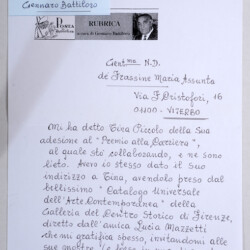 Gennaro Battiloro
POESIA
RUBRICA
a cura di Gennaro Battiloro
Gent.ma N.D.
de Frassine Maria Assunta
Via F. Cristofori, 16
01100 - VITERBO
Mi ha detto Tina Piccolo della Sua
adesione al "Premio alla Carriera",
al quale sto collaborando, e ne sono
lieto. Avevo io stesso dato il Suo
indirizzo a Tina, avendolo preso dal
bellissimo "Catalogo Universale
dell'Arte Contemporanea" della
Galleria del Centro Storico di Firenze,
diretto dall'amica Lucia Mazzetti
che mi gratifica spesso, invitandomi alle
sue mostre